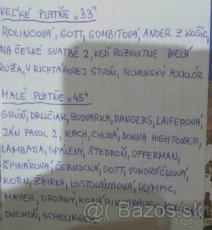 VEĽKÉ PLATNE „33"
ROLINCOVÁ, GOTT, GOMBITOVÁ, ANDER Z KOŠÍC,
NA ČESKÉ SVATBĚ 2, KEĎ ROZKVITNE BIELA
RUŽA, V RICHTÁROVEJ ŠTUDNI, SLOVENSKÝ FOLKLÓR
MALÉ PLATNE „45"
GRÜN, DRUČIAK, BUDVARKA, RANGERS, LAIFEROVÁ,
JÁN PAVOL 2, VLACH, CHUDÁ, DONNA HIGHTOWER,
LAMBADA, SPÁLENÝ, ŠTEDROŇ, OFFERMAN,
ŠPINAROVÁ, ČERNOCKÁ, GOTT, VONDRÁČKOVÁ,
KORN, ZBIRKA, KOSTOLÁNYIOVÁ, OLYMPIC,
MAYER, DROBNÝ,
DUCHOŇ, SCHELINGER
Bazos.sk